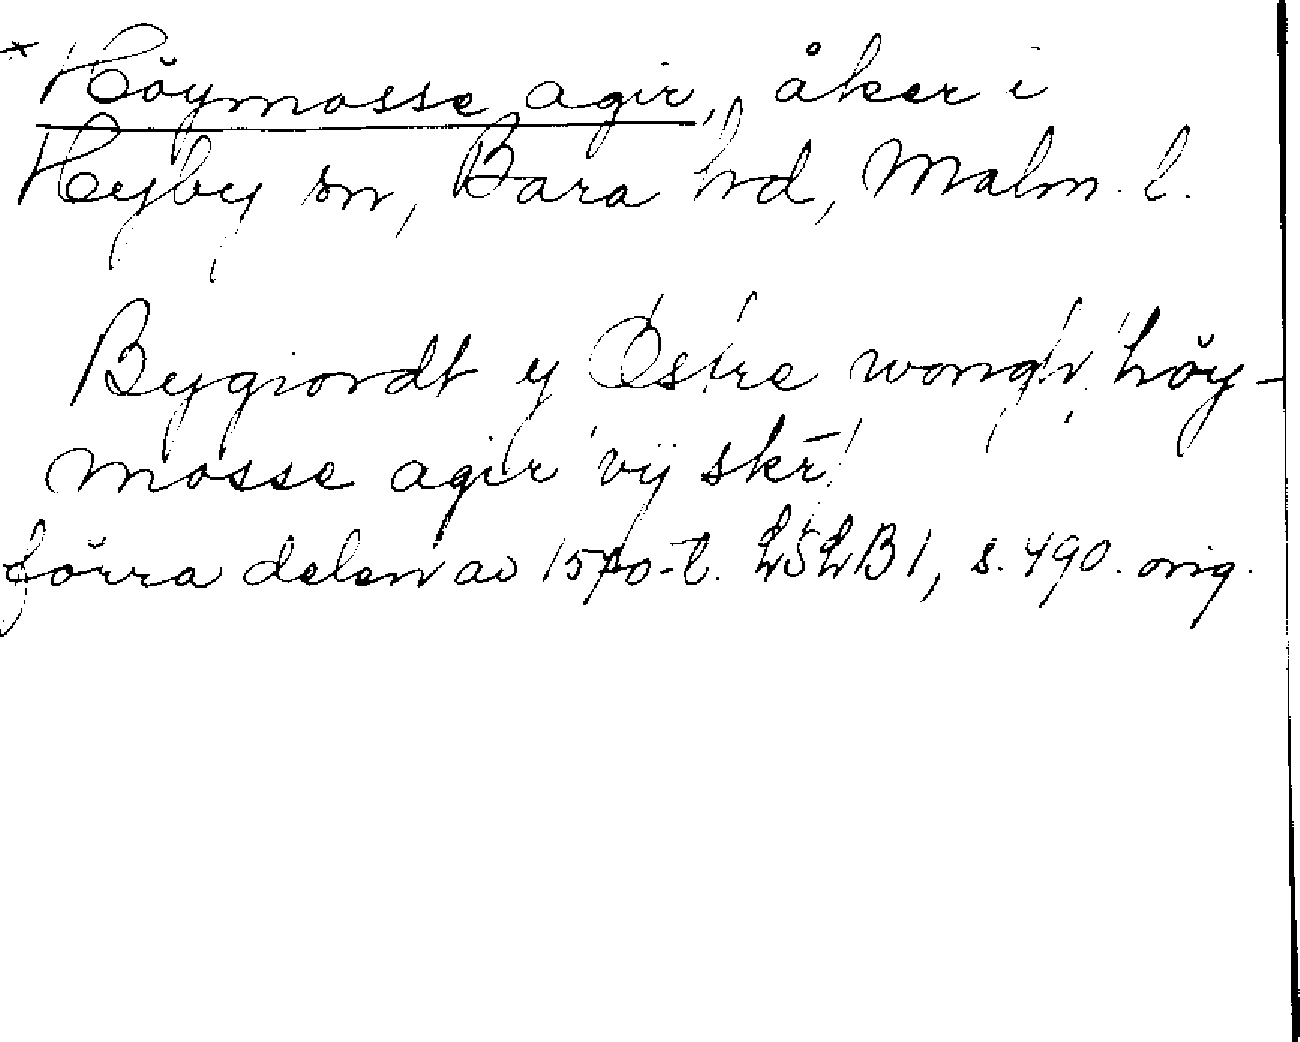 * Höymosse agir, åker i
Hyby sn, Bara hd, Malm. l.
Bygiordt y Östre wongh höy-
mosse agir vij skr̄
förra delen av 1570-t. LSLB1, s. 490. orig.